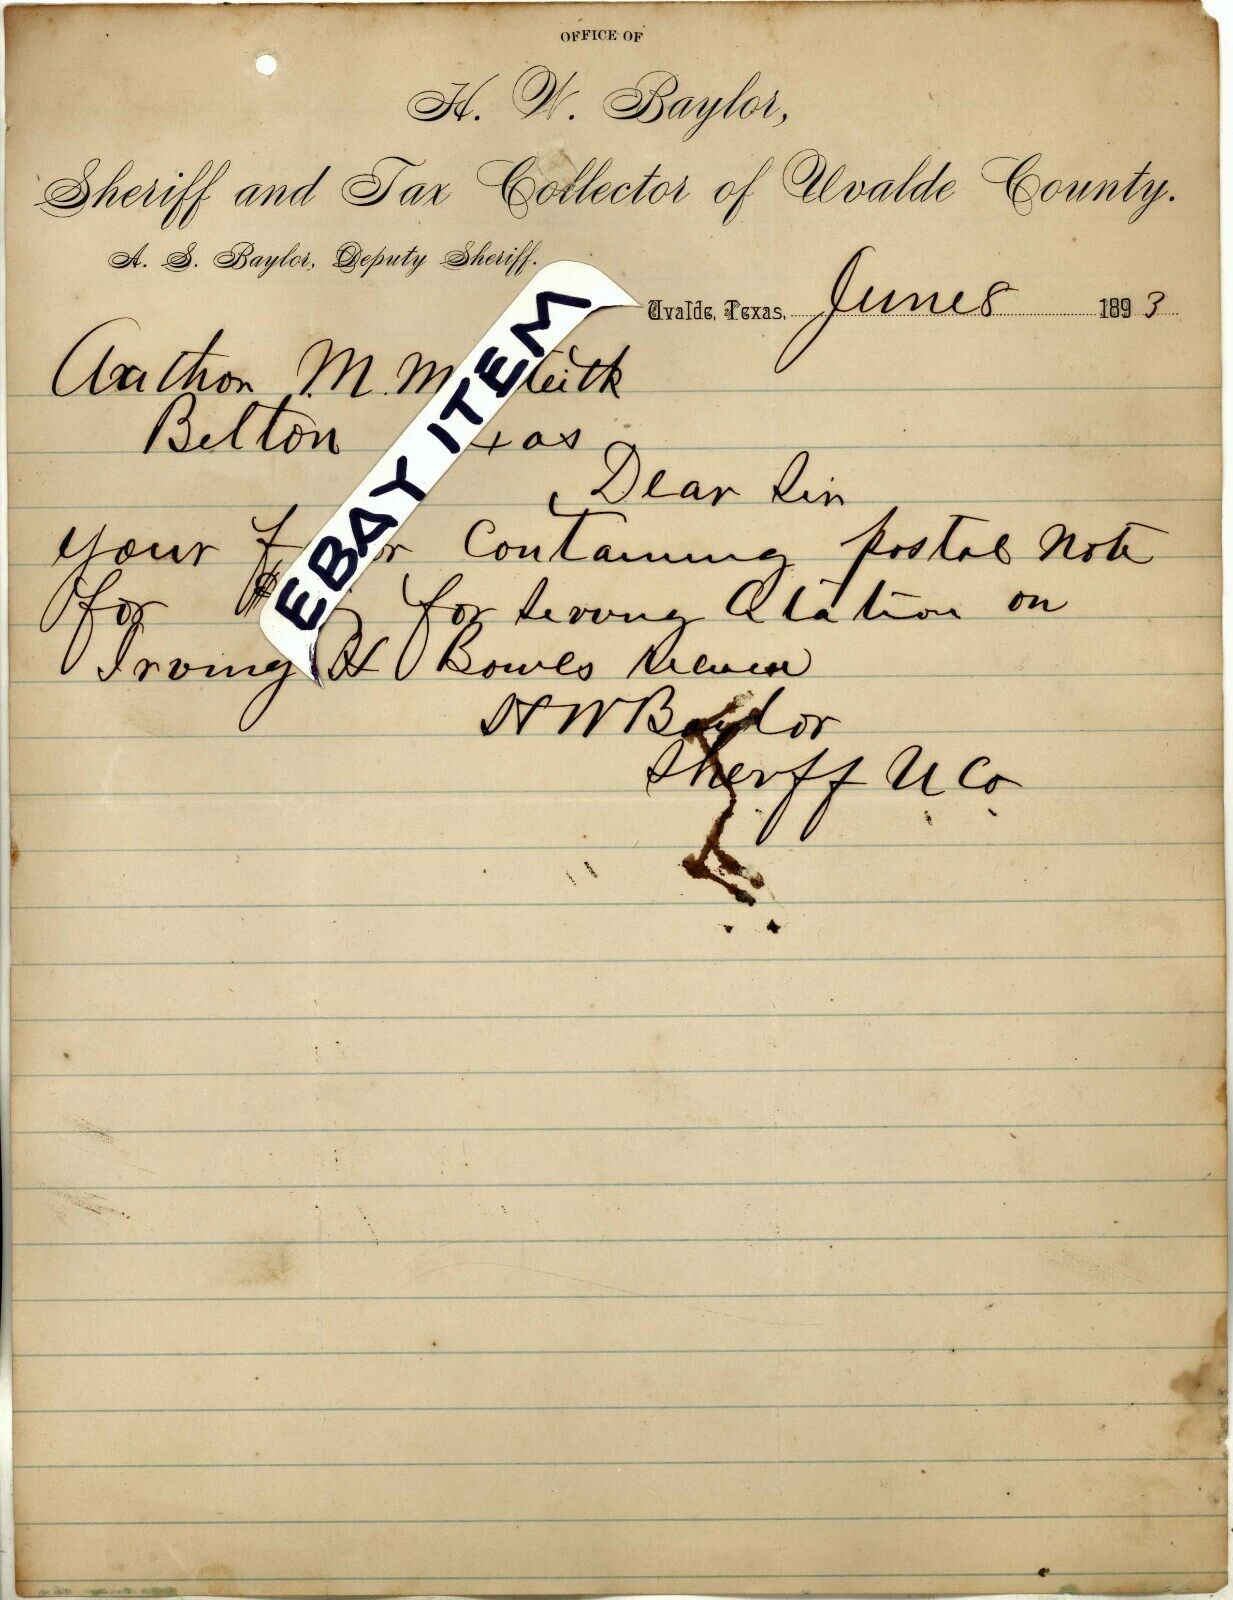 OFFICE OF
H. W. Baylor,
Sheriff and Tax Collector of Uvalde County.
A. S. Baylor, Deputy Sheriff.
Uvalde, Texas, June 8 1893
M. M
Belton xas
Dear Sir
your f r containing postal note
for $ for serving Citation on
Irving H Bowles
H W Baylor
Sheriff U Co
EBAY ITEM